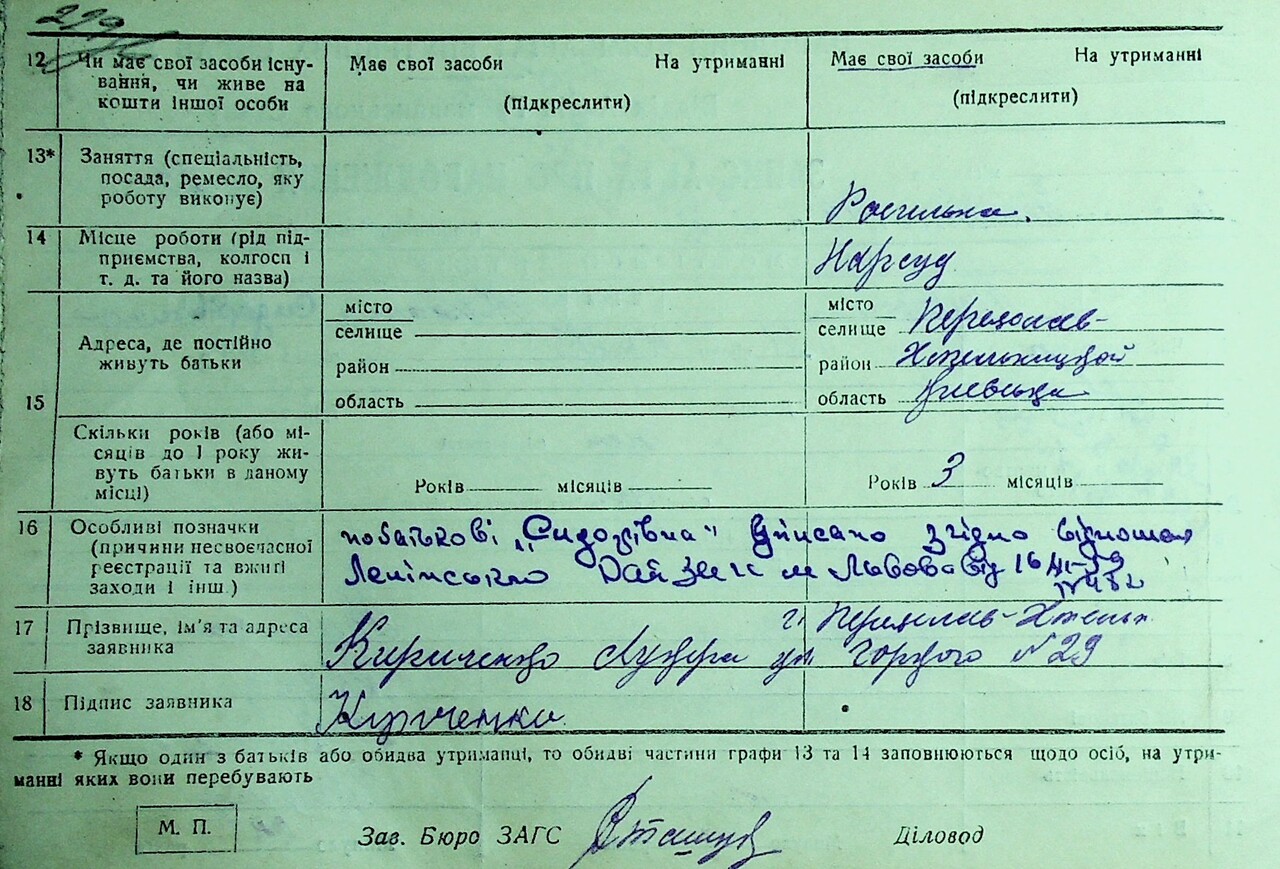 229
12 Чи має свої засоби існу- Має свої засоби На утриманні Має свої засоби На утриманні
вання, чи живе на (підкреслити) (підкреслити)
кошти іншої особи
13* Заняття (спеціальність,
посада, ремесло, яку
роботу виконує)
14 Місце роботи (рід під- Нарсуд
приємства, колгосп і
т. д. та його назва)
15 Адреса, де постійно живуть батьки
місто
селище
район
область
місто
селище Переяслав-
район Хмельницкой
область Київська
Скільки років (або мі-
сяців до 1 року жи-
вуть батьки в даному
місці)
Років місяців Років 3 місяців
16 Особливі позначки
(причини несвоєчасної
реєстрації та вжиті
заходи і інш.)
побатькові „Сидорівна" Вписано згідно відношен
Ленінського Рай м Львова від 16
17 Прізвище, ім'я та адреса
заявника
г. Переяслав-Хмельн.
Кириченко ул. №29
18 Підпис заявника Кириченко
* Якщо один з батьків або обидва утриманці, то обидві частини графи 13 та 14 заповнюються щодо осіб, на утри-
манні яких вони перебувають
М. П. Зав. Бюро ЗАГС Діловод